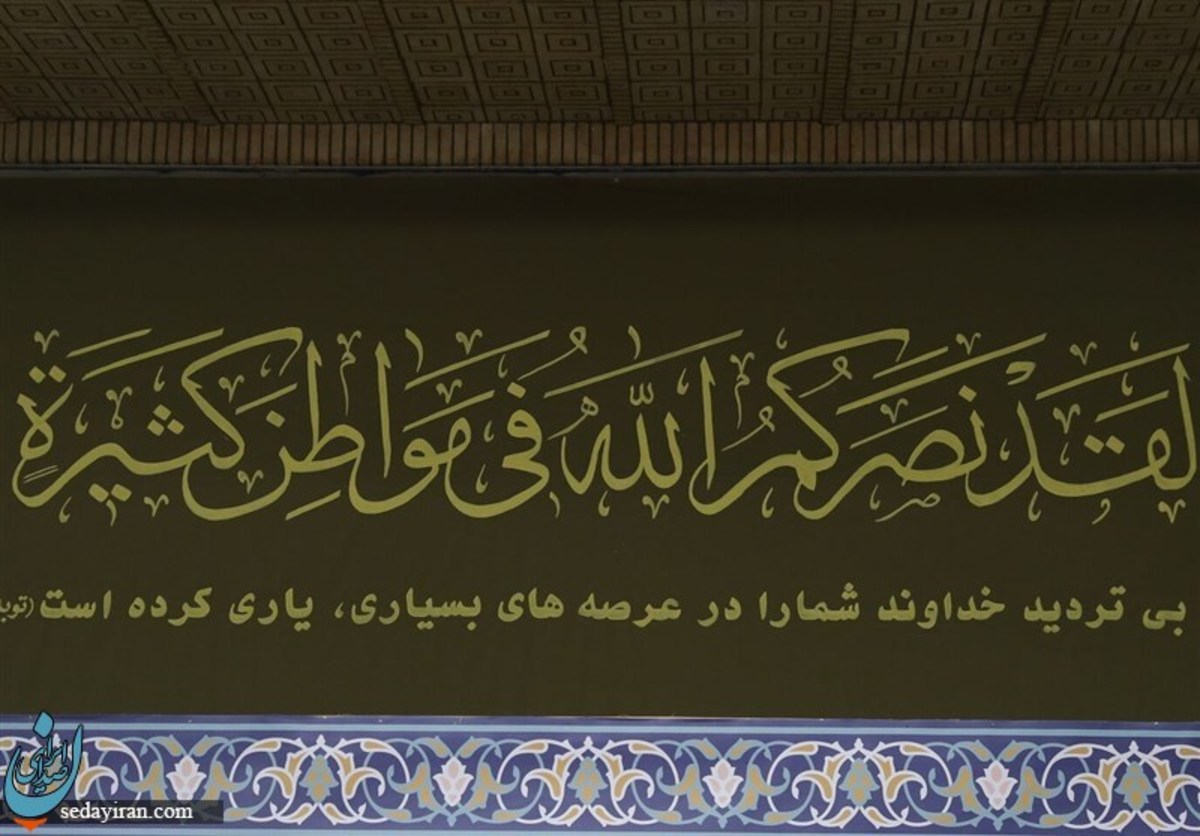 لَقَدْ نَصَرَكُمُ اللهُ فِی مَواطِنَ كَثِيرَةٍ
بی تردید خداوند شمارا در عرصه های بسیاری، یاری کرده است
صدای ایران
sedayiran.com